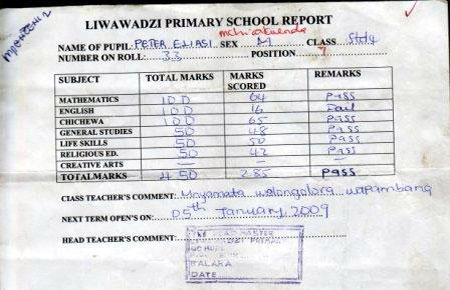 LIWAWADZI PRIMARY SCHOOL REPORT
NAME OF PUPIL: PETER ELIASI SEX M CLASS Std4
NUMBER ON ROLL: 33 POSITION 7
SUBJECT TOTAL MARKS MARKS SCORED REMARKS
MATHEMATICS 100 64 Pass
ENGLISH 100 16 Fail
CHICHEWA 100 65 Pass
GENERAL STUDIES 50 48 Pass
LIFE SKILLS 50 50 Pass
RELIGIOUS ED. 50 42 Pass
CREATIVE ARTS — — —
TOTALMARKS 450 285 Pass
CLASS TEACHER'S COMMENT: Mnyamata wolongolora wapambana
NEXT TERM OPEN'S ON: 05th January 2009
HEAD TEACHER'S COMMENT:
THE HEADMASTER
BALAKA
DATE